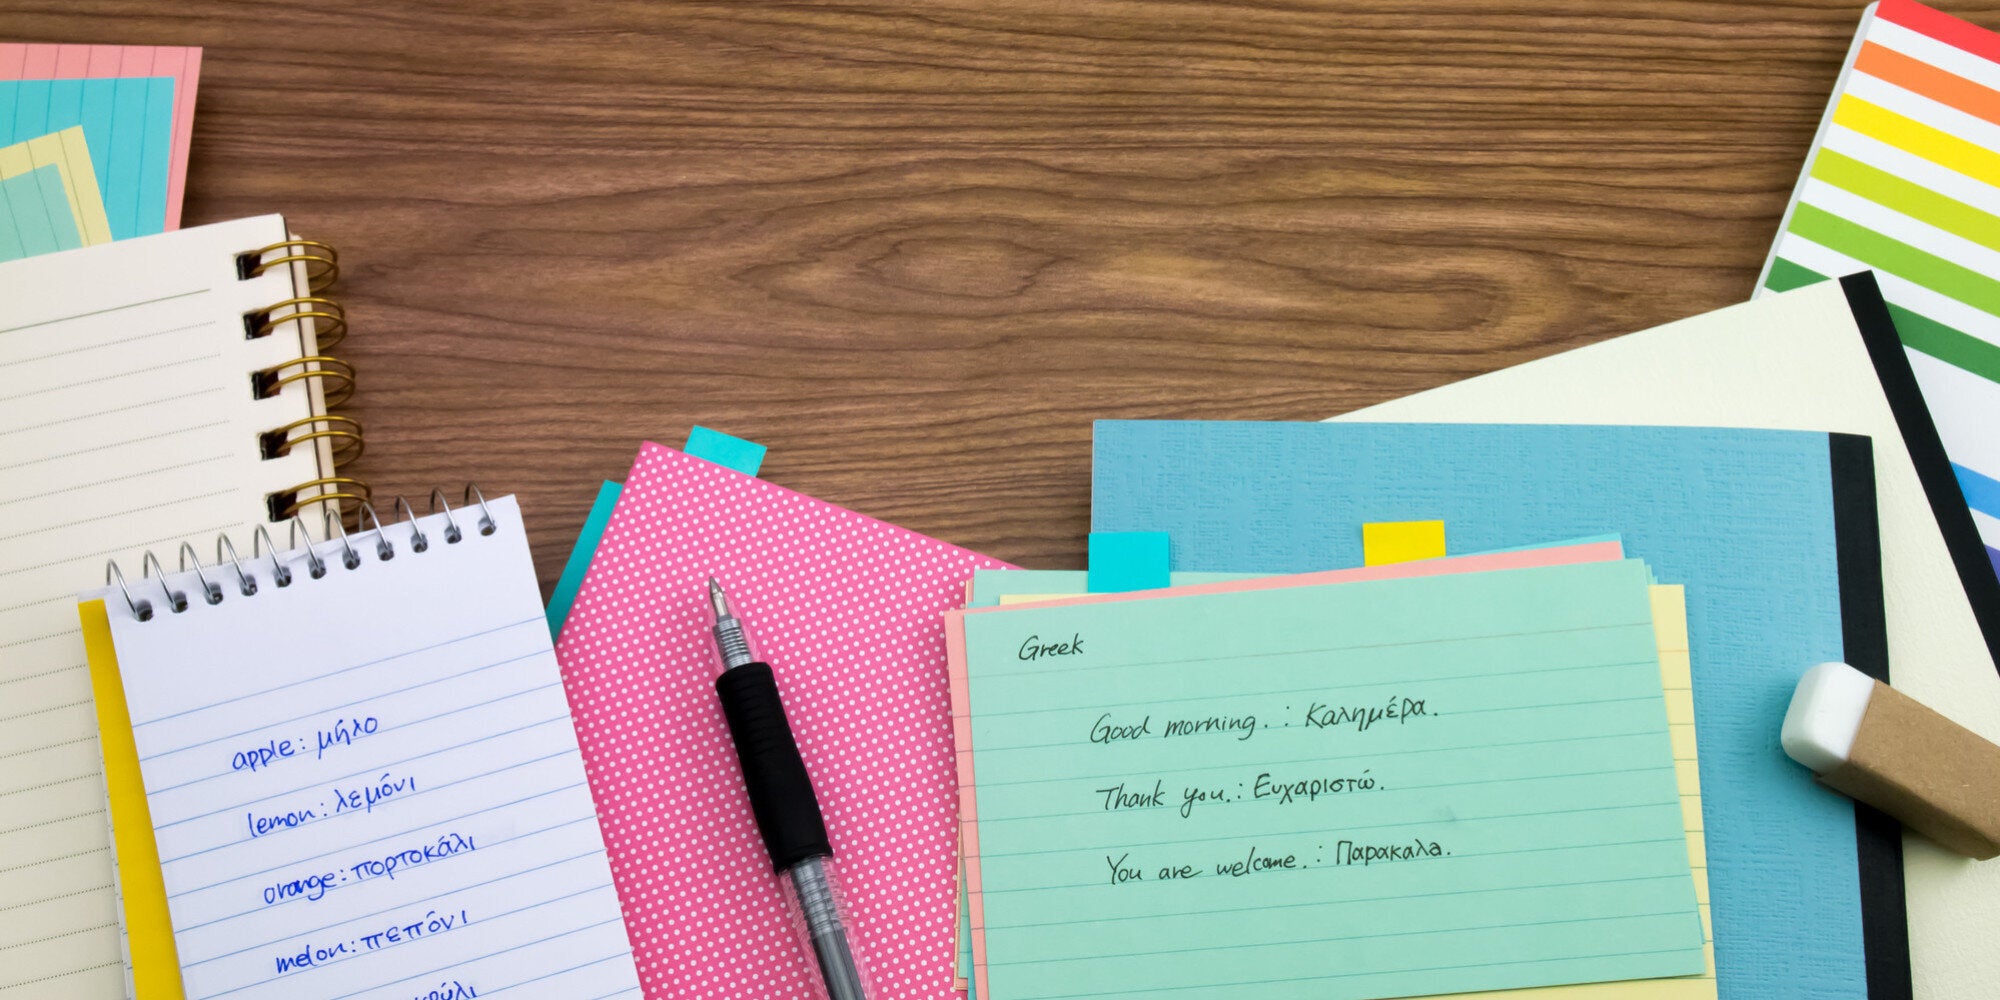 apple: μήλο
lemon: λεμόνι
orange: πορτοκάλι
melon: πεπόνι
Greek
Good morning. : Καλημέρα.
Thank you. : Ευχαριστώ.
You are welcome. : Παρακαλα.